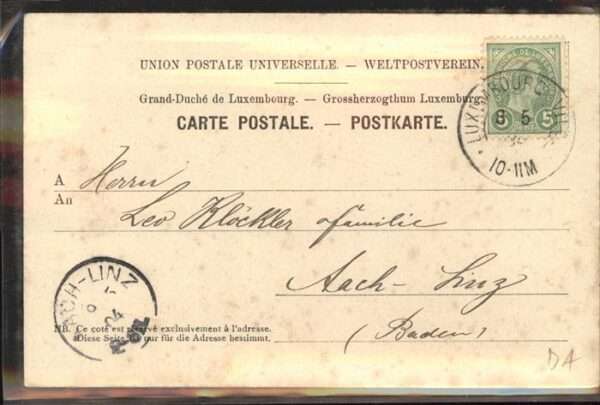 UNION POSTALE UNIVERSELLE. — WELTPOSTVEREIN.
Grand-Duché de Luxembourg. — Grossherzogthum Luxemburg.
CARTE POSTALE. — POSTKARTE.
5
8 5
10-11M
A
An
Herrn
Leo Klöckler Familie
Aach-Linz
(Baden)
AACH-LINZ
04
NB. Ce coté est réservé exclusivement à l'adresse.
Diese Seite ist nur für die Adresse bestimmt.
DA